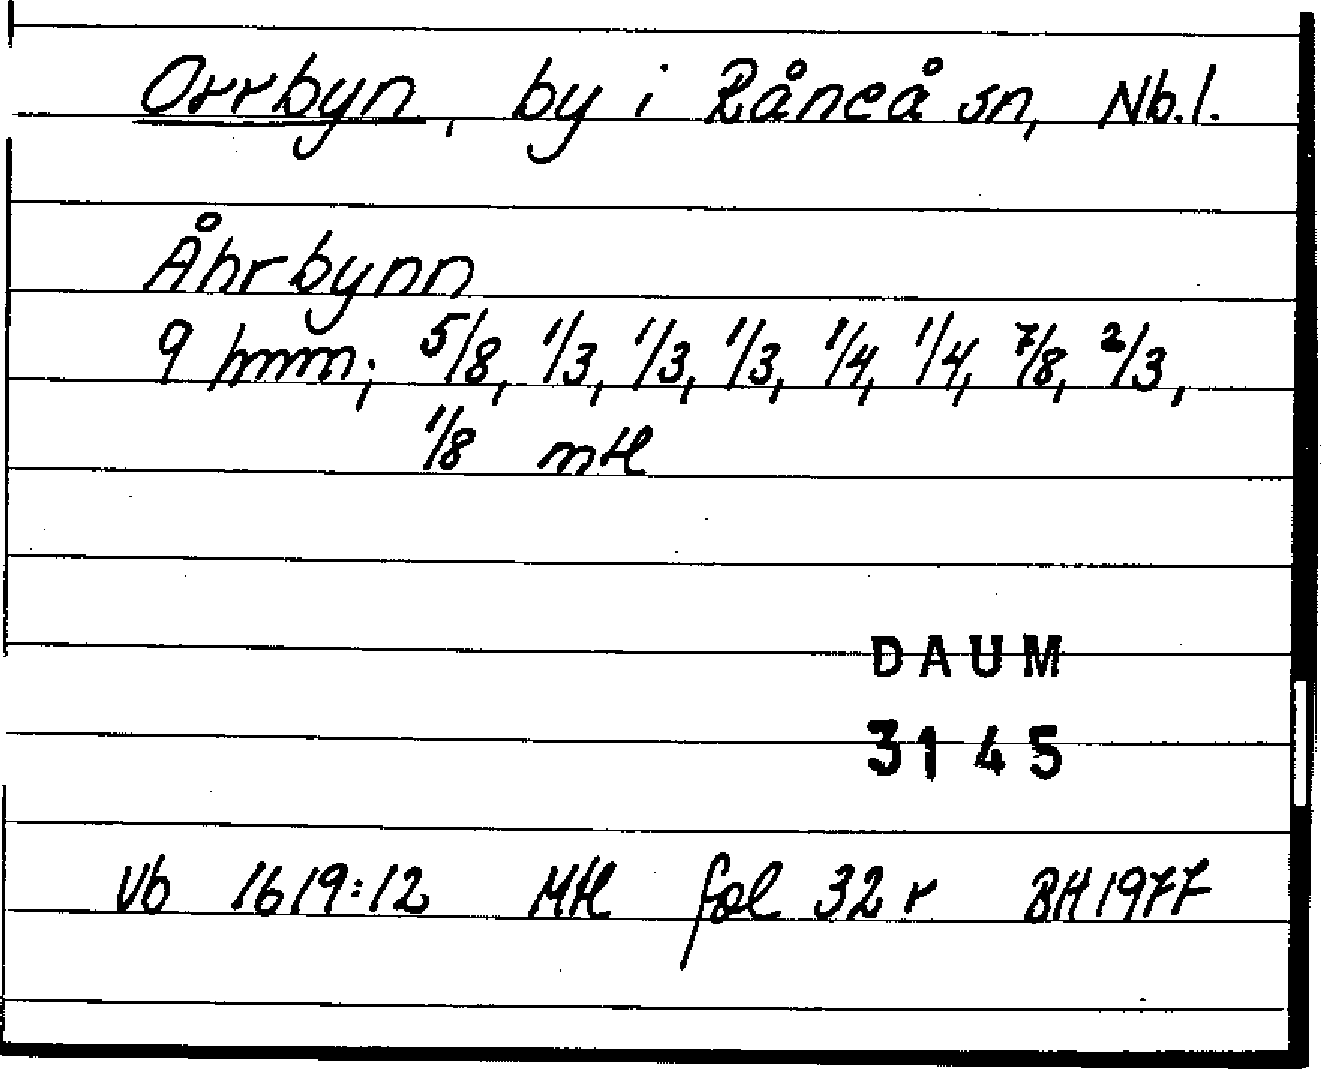 Orrbyn, by i Råneå sn, Nb.l.
Åhrbynn
9 hmm; 5/8, 1/3, 1/3, 1/3, 1/4, 1/4, 7/8, 2/3,
1/8 mtl
DAUM
3145
Vb 1619:12 Mtl fol 32 r BH 1977